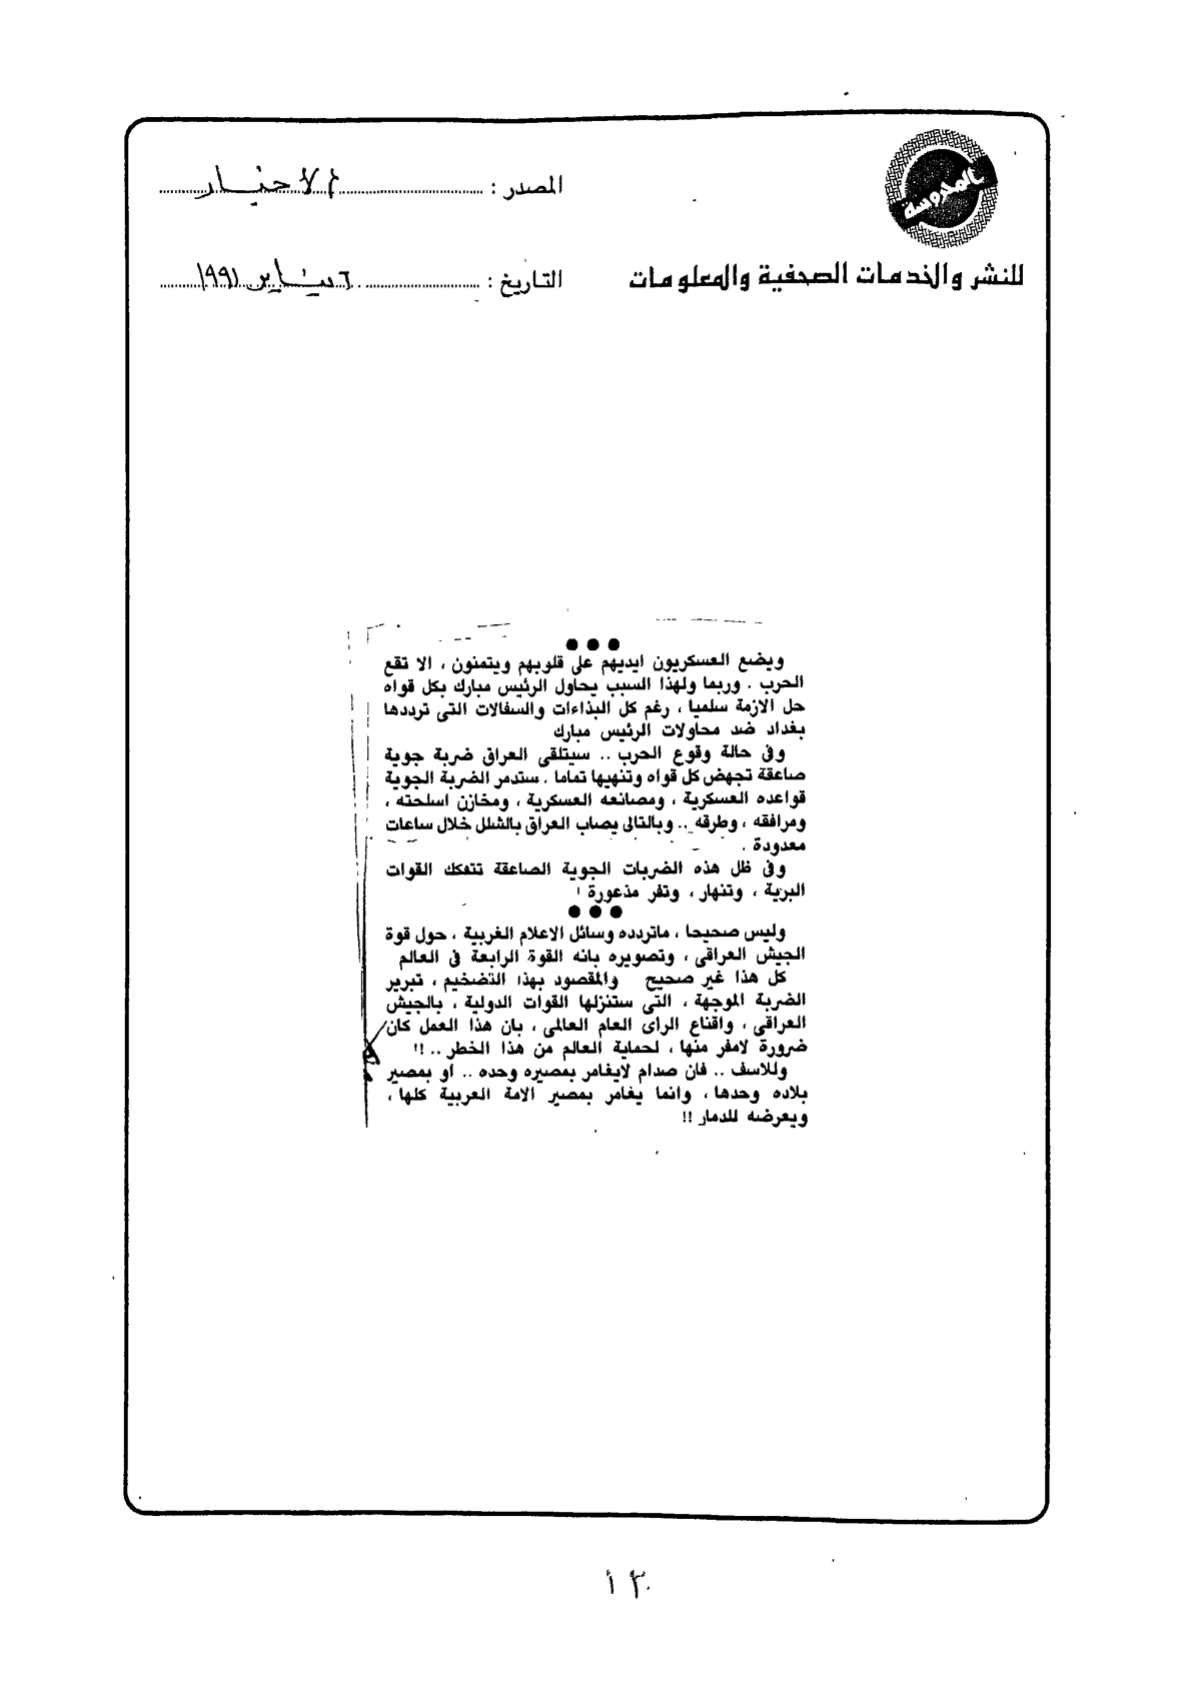 المحروسة
للنشر والخدمات الصحفية والمعلومات
المصدر : الاخبار
التاريخ : ٦ يناير ١٩٩١
●●●
ويضع العسكريون ايديهم على قلوبهم ويتمنون ، الا تقع
الحرب . وربما ولهذا السبب يحاول الرئيس مبارك بكل قواه
حل الازمة سلميا ، رغم كل البذاءات والسفالات التى ترددها
بغداد ضد محاولات الرئيس مبارك
وفى حالة وقوع الحرب .. سيتلقى العراق ضربة جوية
صاعقة تجهض كل قواه وتنهيها تماما . ستدمر الضربة الجوية
قواعده العسكرية ، ومصانعه العسكرية ، ومخازن اسلحته ،
ومرافقه ، وطرقه .. وبالتالى يصاب العراق بالشلل خلال ساعات
معدودة .
وفى ظل هذه الضربات الجوية الصاعقة تتفكك القوات
البرية ، وتنهار ، وتفر مذعورة !
●●●
وليس صحيحا ، ماتردده وسائل الاعلام الغربية ، حول قوة
الجيش العراقى ، وتصويره بانه القوة الرابعة فى العالم
كل هذا غير صحيح والمقصود بهذا التضخيم ، تبرير
الضربة الموجهة ، التى ستنزلها القوات الدولية ، بالجيش
العراقى ، واقناع الراى العام العالمى ، بان هذا العمل كان
ضرورة لامفر منها ، لحماية العالم من هذا الخطر .. !!
وللاسف .. فان صدام لايغامر بمصيره وحده .. او بمصير
بلاده وحدها ، وانما يغامر بمصير الامة العربية كلها ،
ويعرضه للدمار !!
١٣